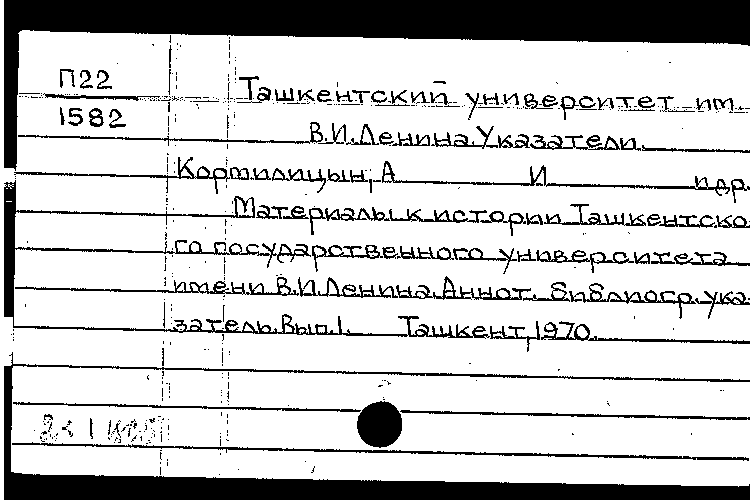 П22
1582
Ташкентский университет им.
В.И.Ленина.Указатели.
Кормилицын, А И и др.
Материалы к истории Ташкентско
го государственного университета
имени В.И.Ленина.Аннот. библиогр. ука-
затель.Вып.1. Ташкент, 1970.